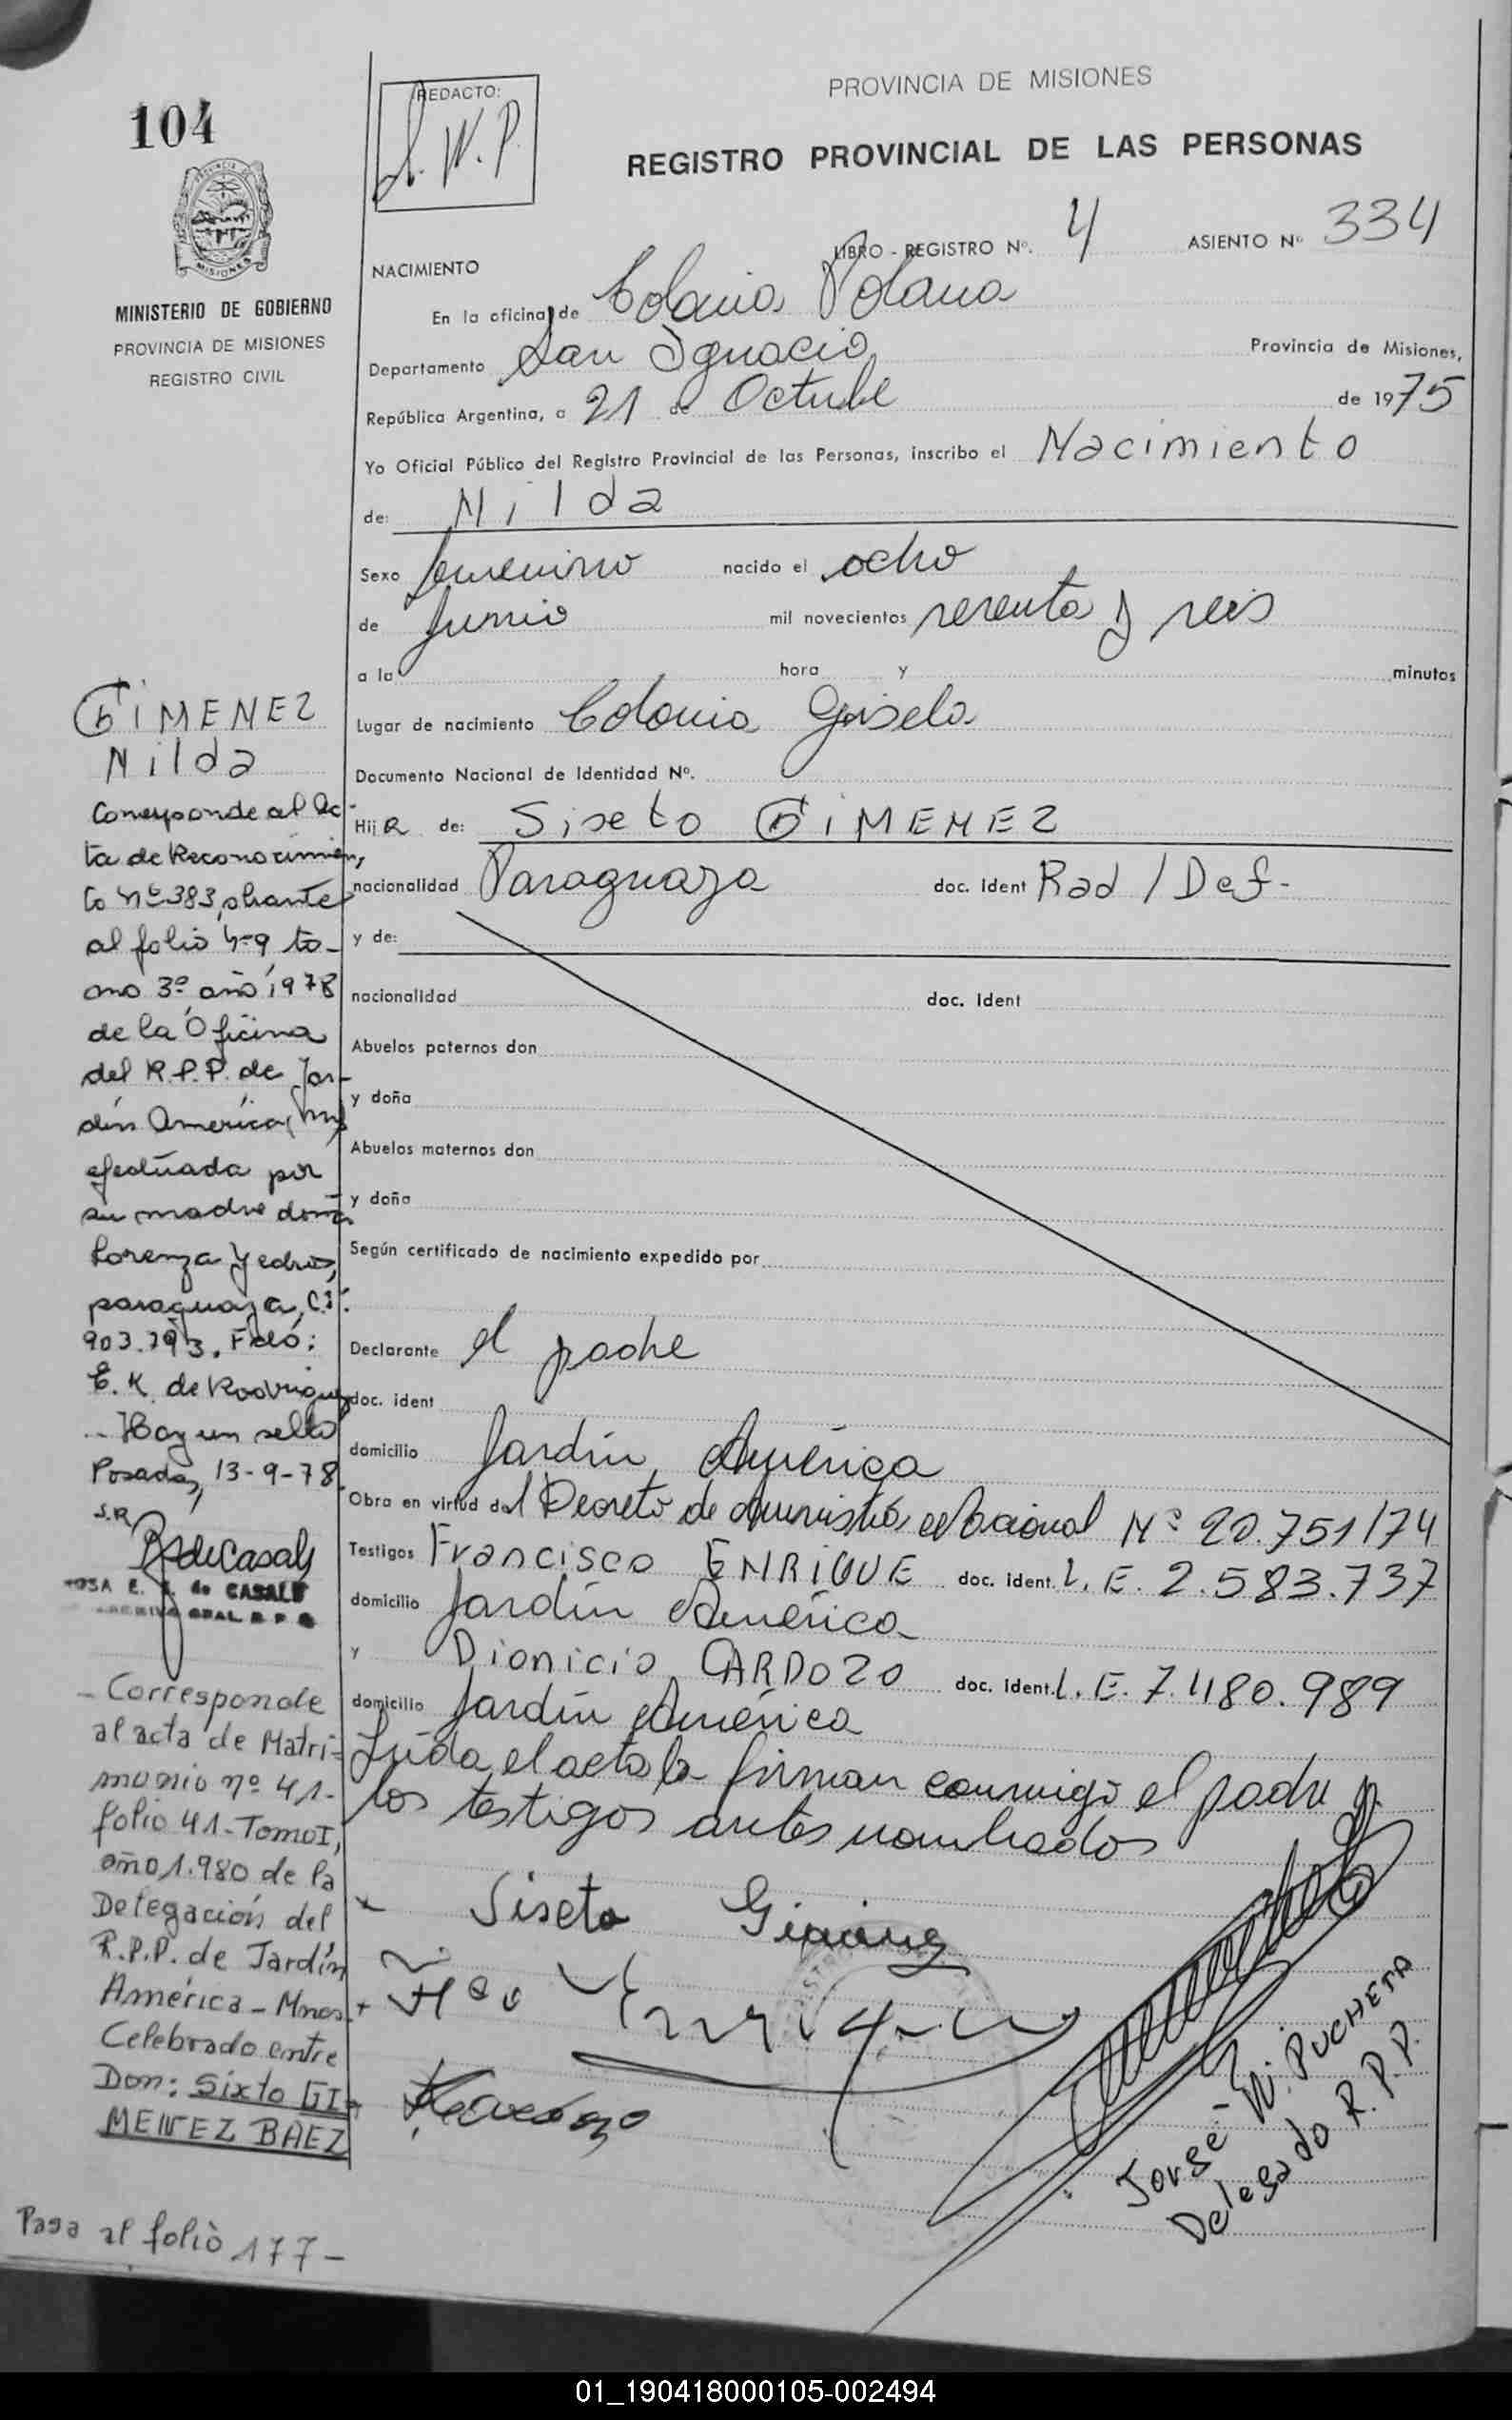 104
REDACTO:
J. W. P.
PROVINCIA DE MISIONES
REGISTRO PROVINCIAL DE LAS PERSONAS
MISIONES
MINISTERIO DE GOBIERNO
PROVINCIA DE MISIONES
REGISTRO CIVIL
LIBRO - REGISTRO Nº. 4 ASIENTO Nº 334
NACIMIENTO
En la oficina de Colonia Polana
Departamento San Ignacio Provincia de Misiones,
República Argentina, a 21 de Octubre de 1975
Yo Oficial Público del Registro Provincial de las Personas, inscribo el Nacimiento
de: Nilda
Sexo femenino nacido el ocho
de Junio mil novecientos sesenta y seis
a la hora y minutos
Lugar de nacimiento Colonia Gisela
Documento Nacional de Identidad Nº.
Hija de: Siseto GiMENEZ
nacionalidad Paraguaya doc. Ident Rad/Def-
y de:
nacionalidad doc. Ident
Abuelos paternos don
y doña
Abuelos maternos don
y doña
Según certificado de nacimiento expedido por
Declarante el padre
doc. ident
domicilio Jardín América
Obra en virtud del Decreto de Nacional Nº 20.751/74
Testigos Francisco ENRiQUE doc. ident. L. E. 2.583.737
domicilio Jardín América
y Dionicio CARDOZO doc. ident. L. E. 7.480.989
domicilio Jardín América
Leida el acta la firman conmigo el padre y
los testigos antes nombrados
Siseto Gimenez
Jorge W. PUCHETA
Delegado R.P.P.
GiMENEZ
Nilda
Corresponde al Ac-
ta de Reconocimien
to Nº 383, obrante
al folio to-
mo 3º año 1978
de la Oficina
del R.P.P. de Jar-
dín América, Mnes
efectuada por
su madre doña
Lorenza Yedros,
paraguaya, C.I.
903.793. Fdo:
E. K. de Rodriguez
-- Hay un sello
Posadas, 13-9-78.
S.R
RdeCasals
ROSA E. de CASALS
ARCHIVO GRAL R P P
- Corresponde
al acta de Matri-
monio nº 41-
folio 41-Tomo I,
año 1.980 de la
Delegación del
R.P.P. de Jardín
América - Mnes.
Celebrado entre
Don: Sixto GI-
MENEZ BAEZ
Pasa al folio 177-
01_190418000105-002494